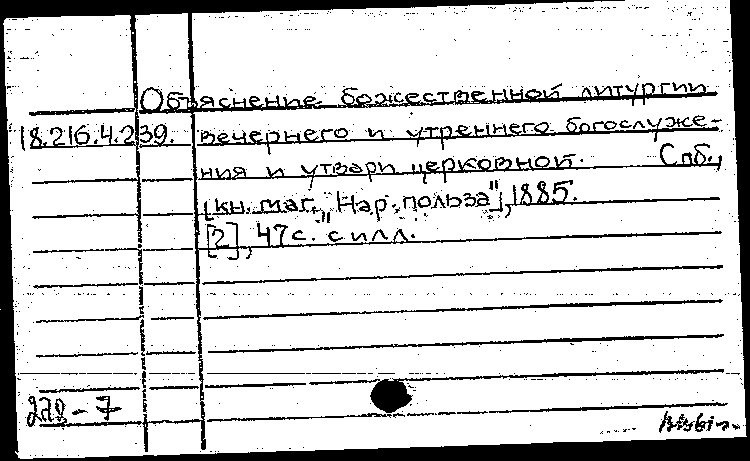 Объяснение божественной литургии
18.216.4.239. вечернего и утреннего богослуже-
ния и утвари церковной. Спб.,
[кн. маг. „Нар. польза"], 1885.
[2], 47 с. с илл.
278-7